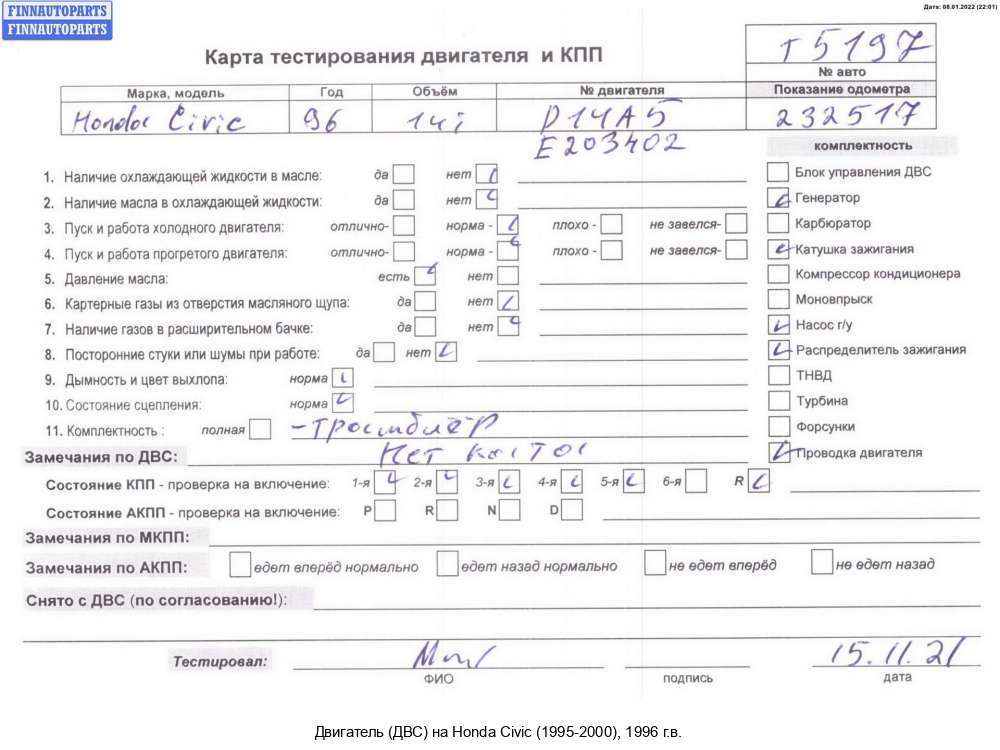 FINNAUTOPARTS
FINNAUTOPARTS
Дата: 08.01.2022 (22:01)
Карта тестирования двигателя и КПП
T5197
№ авто
Марка, модель Год Объём № двигателя Показание одометра
Honda Civic 96 14i D14A5 232517
E203402
комплектность
1. Наличие охлаждающей жидкости в масле: да нет
Блок управления ДВС
2. Наличие масла в охлаждающей жидкости: да нет
Генератор
3. Пуск и работа холодного двигателя: отлично- норма - плохо - не завелся-
Карбюратор
4. Пуск и работа прогретого двигателя: отлично- норма - плохо - не завелся-
Катушка зажигания
5. Давление масла: есть нет
Компрессор кондиционера
6. Картерные газы из отверстия масляного щупа: да нет
Моновпрыск
7. Наличие газов в расширительном бачке: да нет
Насос г/у
8. Посторонние стуки или шумы при работе: да нет
Распределитель зажигания
9. Дымность и цвет выхлопа: норма
ТНВД
10. Состояние сцепления: норма
Турбина
11. Комплектность : полная -трамблёр
Форсунки
Замечания по ДВС: Нет
Проводка двигателя
Состояние КПП - проверка на включение: 1-я 2-я 3-я 4-я 5-я 6-я R
Состояние АКПП - проверка на включение: P R N D
Замечания по МКПП:
Замечания по АКПП: едет вперёд нормально едет назад нормально не едет вперёд не едет назад
Снято с ДВС (по согласованию!):
Тестировал: 15.11.21
ФИО подпись дата
Двигатель (ДВС) на Honda Civic (1995-2000), 1996 г.в.